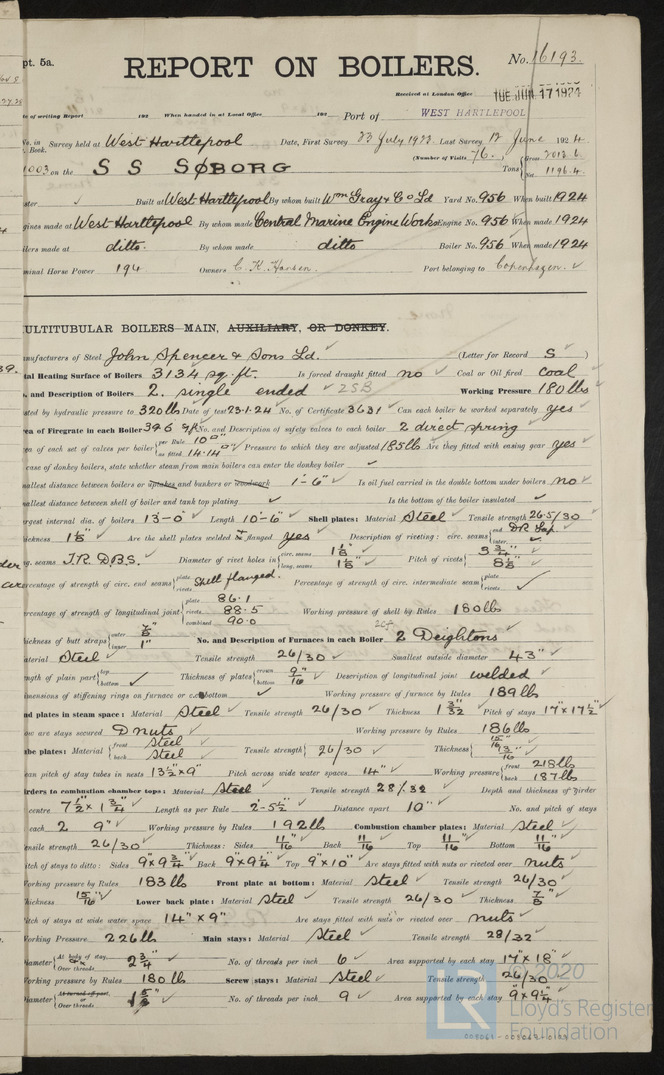 pt. 5a.
REPORT ON BOILERS.
No. 16193.
Received at London Office TUE. JUN. 17 1924
te of writing Report 192 When handed in at Local Office 192 Port of WEST HARTLEPOOL
No. in Survey held at West Hartlepool Date, First Survey 23 July 1923 Last Survey 12 June 1924
Book. (Number of Visits 76.)
1003 on the S S SØBORG Tons { Gross 2013.6 Net 1196.4
ster ✓ Built at West Hartlepool By whom built Wm Gray & Co Ld Yard No. 956 When built 1924
gines made at West Hartlepool By whom made Central Marine Engine Works Engine No. 956 When made 1924
ilers made at ditto. By whom made ditto Boiler No. 956 When made 1924
minal Horse Power 194 Owners C. K. Hansen. Port belonging to Copenhagen. ✓
ULTITUBULAR BOILERS—MAIN, AUXILIARY, OR DONKEY.
anufacturers of Steel John Spencer & Sons Ld. (Letter for Record S)
tal Heating Surface of Boilers 3134 sq. ft. Is forced draught fitted no Coal or Oil fired coal
. and Description of Boilers 2. single ended 2SB Working Pressure 180 lbs
sted by hydraulic pressure to 320 lbs Date of test 23.1.24 No. of Certificate 3631 Can each boiler be worked separately yes
rea of Firegrate in each Boiler 39.6 No. and Description of safety valves to each boiler 2 direct spring
ea of each set of valves per boiler { per Rule 10 as fitted 14.14 Pressure to which they are adjusted 185 lb Are they fitted with easing gear yes
case of donkey boilers, state whether steam from main boilers can enter the donkey boiler ✓
mallest distance between boilers or uptakes and bunkers or woodwork 1'-6" Is oil fuel carried in the double bottom under boilers no
mallest distance between shell of boiler and tank top plating ✓ Is the bottom of the boiler insulated ✓
argest internal dia. of boilers 13'-0" Length 10'-6" Shell plates: Material Steel Tensile strength 26.5/30
ickness 1 1/8" Are the shell plates welded or flanged yes Description of riveting: circ. seams { end DR Lap. inter. ✓
ng. seams T.R. D.B.S. Diameter of rivet holes in { circ. seams 1 1/8" long. seams 1 1/8" Pitch of rivets { 3 3/4" 8 1/8"
ercentage of strength of circ. end seams { plate rivets Shell flanged. Percentage of strength of circ. intermediate seam { plate rivets ✓
ercentage of strength of longitudinal joint { plate 86.1 rivets 88.5 combined 90.0 Working pressure of shell by Rules 180 lbs
hickness of butt straps { outer 7/8" inner 1" No. and Description of Furnaces in each Boiler 2 Deightons
aterial Steel Tensile strength 26/30 Smallest outside diameter 43"
ngth of plain part { top bottom ✓ Thickness of plates { crown bottom 9/16" Description of longitudinal joint welded
imensions of stiffening rings on furnace or c.c. bottom ✓ Working pressure of furnace by Rules 189 lb
nd plates in steam space: Material Steel Tensile strength 26/30 Thickness 1 3/32" Pitch of stays 17" x 17 1/2"
ow are stays secured D nuts Working pressure by Rules 186 lb
ube plates: Material { front Steel back Steel Tensile strength { 26/30 Thickness { 15/16" 13/16"
ean pitch of stay tubes in nests 13 1/2" x 9" Pitch across wide water spaces 14" Working pressure { front 218 lb back 187 lb
irders to combustion chamber tops: Material Steel Tensile strength 28/32 Depth and thickness of girder
centre 7 1/2" x 1 3/4" Length as per Rule 2'-5 1/2" Distance apart 10" No. and pitch of stays
each 2 9" Working pressure by Rules 192 lb Combustion chamber plates: Material Steel
ensile strength 26/30 Thickness: Sides 11/16" Back 11/16" Top 11/16" Bottom 11/16"
itch of stays to ditto: Sides 9" x 9 3/4" Back 9" x 9 1/4" Top 9" x 10" Are stays fitted with nuts or riveted over nuts
orking pressure by Rules 183 lb Front plate at bottom: Material Steel Tensile strength 26/30
hickness 15/16" Lower back plate: Material Steel Tensile strength 26/30 Thickness 7/8"
itch of stays at wide water space 14" x 9" Are stays fitted with nuts or riveted over nuts
orking Pressure 226 lb Main stays: Material Steel Tensile strength 28/32
iameter { At body of stay, or Over threads 2 3/4" No. of threads per inch 6 Area supported by each stay 17" x 18"
orking pressure by Rules 180 lb Screw stays: Material Steel Tensile strength 26/30
iameter { At turned off part, or Over threads No. of threads per inch 9 Area supported by each stay 9" x 9 1/4"
© 2020
LR Lloyd's Register
Foundation